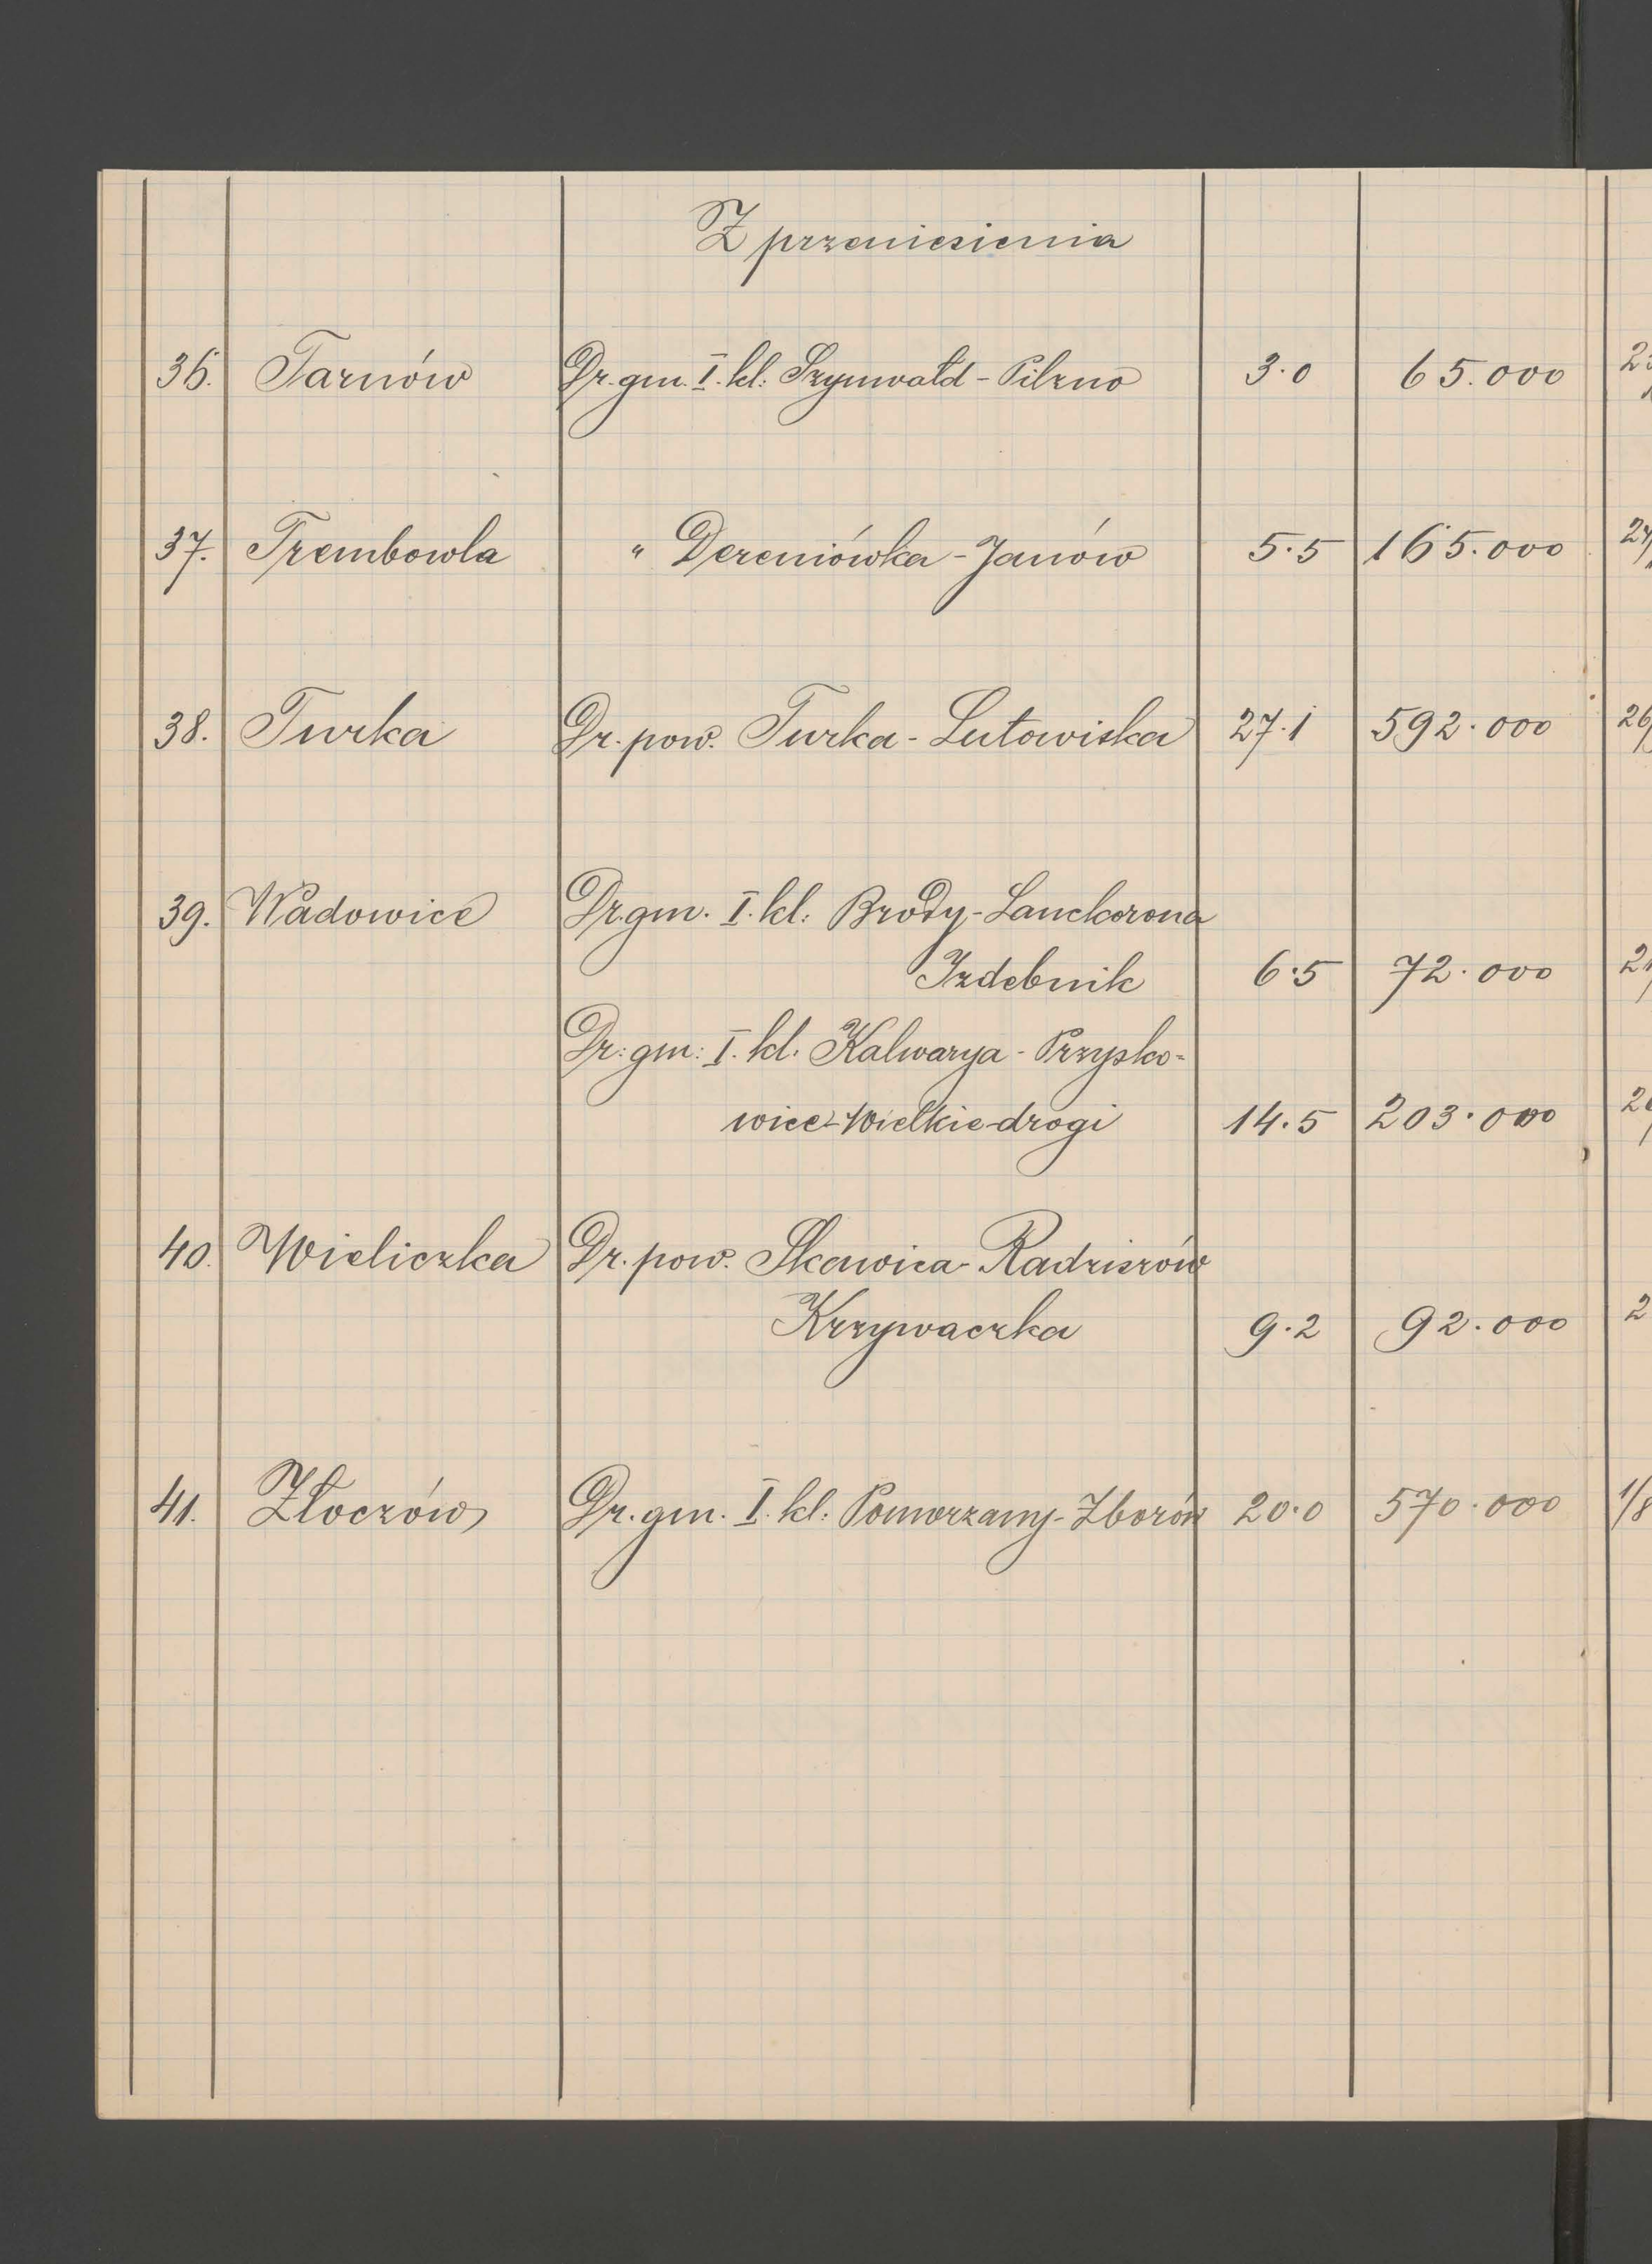 Z przeniesienia
36. Tarnów Dr. gm. I. kl: Szynwałd - Pilzno 3.0 65.000
37. Trembowla " Dereniówka - Janów 5.5 165.000
38. Turka Dr. pow. Turka - Lutowiska 27.1 592.000
39. Wadowice Dr. gm. I. kl: Brody - Lanckorona
Izdebnik 6.5 72.000
Dr: gm: I. kl. Kalwarya - Przysko=
wice - Wielkie-drogi 14.5 203.000
40. Wieliczka Dr. pow. Skawica - Radziszów
Krzywaczka 9.2 92.000
41. Złoczów Dr. gm. I. kl: Pomorzany - Zborów 20.0 570.000